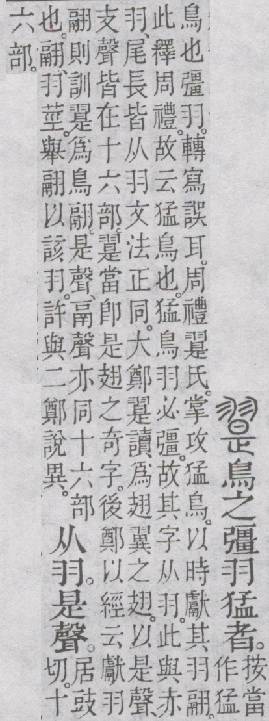 翨鳥之彊羽猛者。按當
作猛
鳥也彊羽。轉寫誤耳。周禮翨氏。掌攻猛鳥。以時獻其羽翮。
此釋周禮。故云猛鳥也。猛鳥羽必彊。故其字从羽。此與亦
羽、尾長皆从羽文法正同。大鄭翨讀爲翅翼之翅。以是聲
支聲皆在十六部。翨當卽是翅之奇字。後鄭以經云獻羽
翮則訓翨爲鳥翮。是聲、鬲聲亦同十六部
也。翮、羽莖。舉翮以該羽。許與二鄭說異。
从羽。是聲。居豉
切。十
六部。